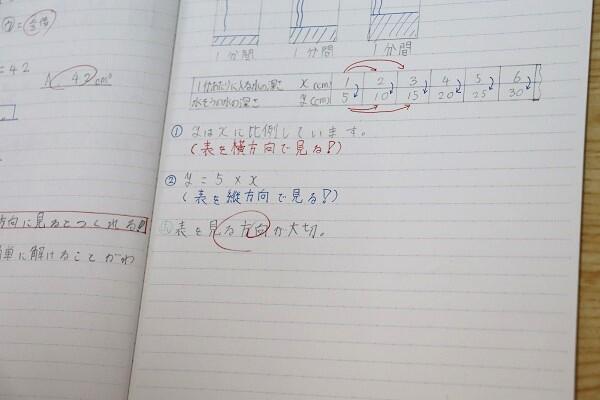 ②=全体
=42
A 42cm³
方向に見るとつくれる
単に解けることがわ
1分間 1分間 1分間
1分あたりに入る水の深さ x(cm) 1 2 3 4 5 6
水そうの水の深さ y(cm) 5 10 15 20 25 30
① yはxに比例しています。
(表を横方向で見る!)
② y=5×x
(表を縦方向で見る!)
表を見る方向が大切。